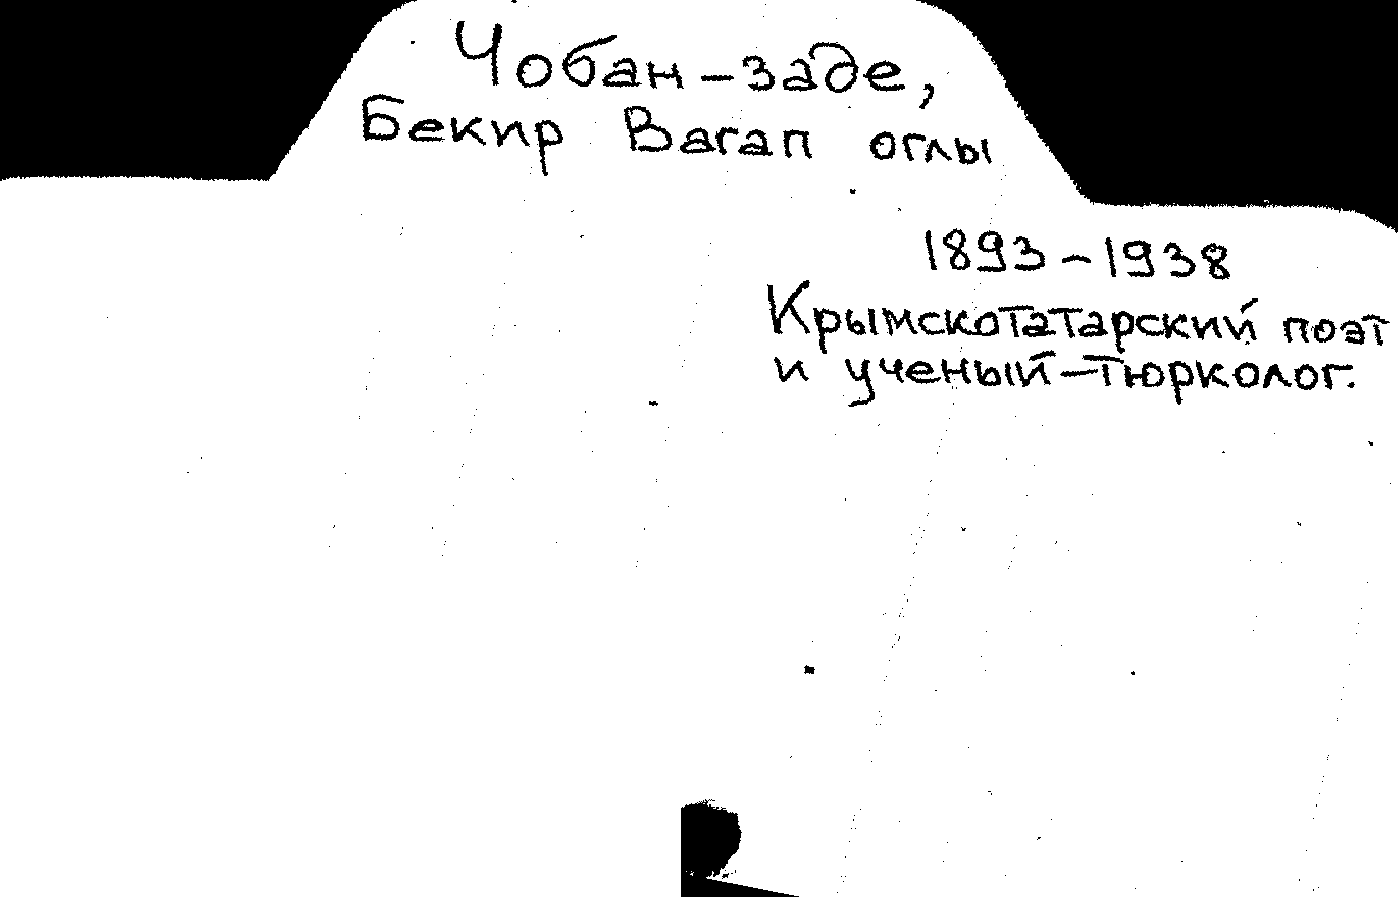 Чобан-заде,
Бекир Вагап оглы
1893-1938
Крымскотатарский поэт
и ученый-тюрколог.